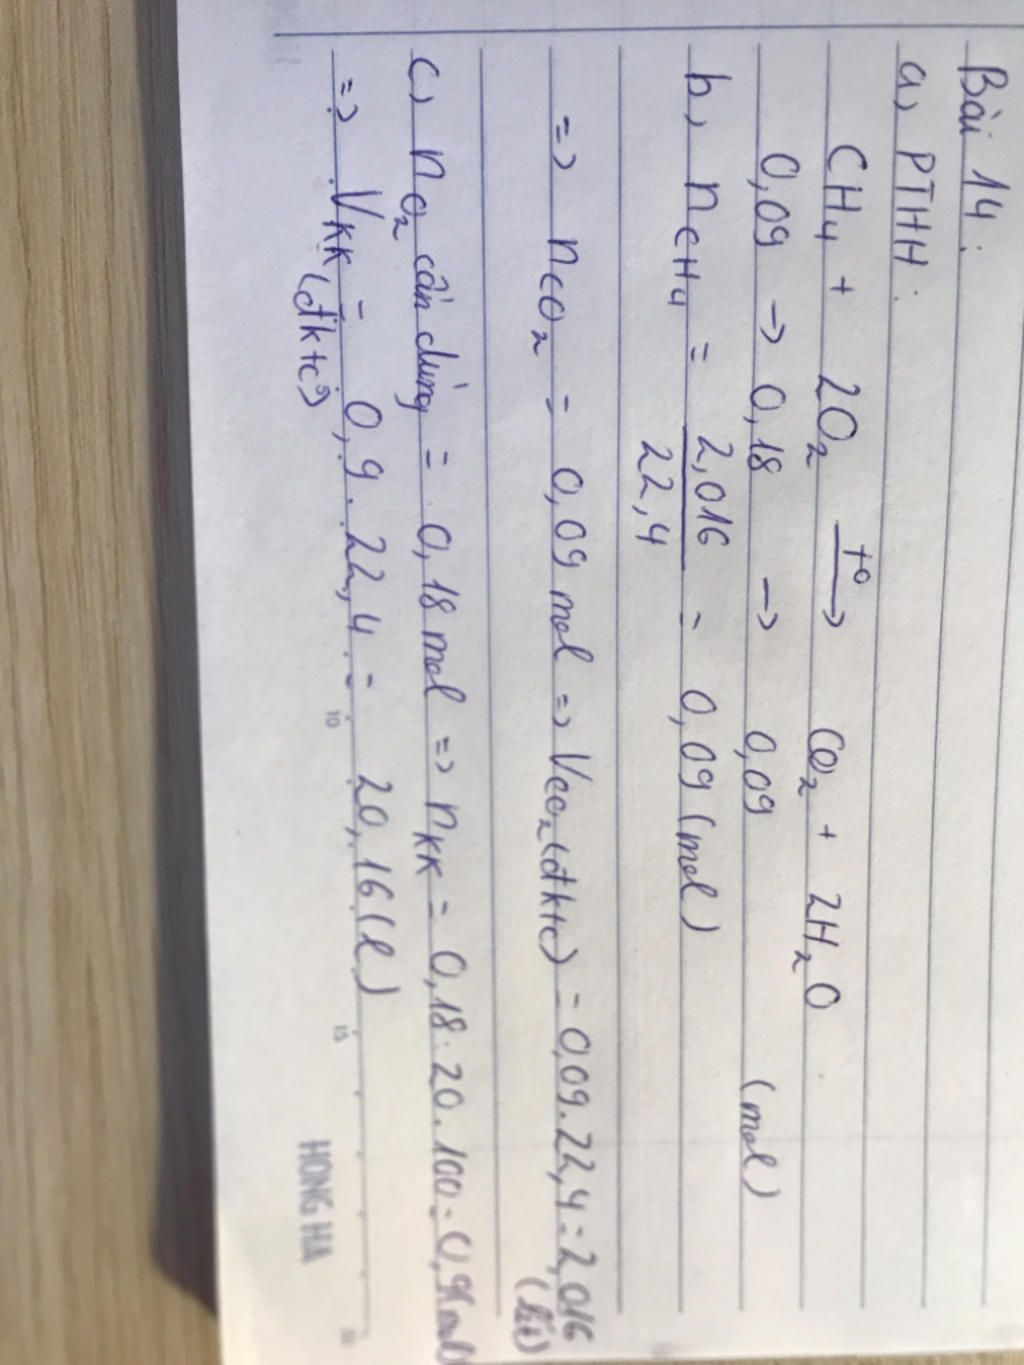 Bài 14:
a, PTHH:
CH₄ + 2O₂ —t°→ CO₂ + 2H₂O
0,09 → 0,18 → 0,09 (mol)
b, nCH₄ = 2,016 / 22,4 = 0,09 (mol)
=> nCO₂ = 0,09 mol => VCO₂(đktc) = 0,09.22,4 = 2,016 (lít)
c, nO₂ cần dùng = 0,18 mol => nKK = 0,18:20.100 = 0,9(mol)
=> VKK(đktc) = 0,9.22,4 = 20,16(l)
10 15 20
HONG HA